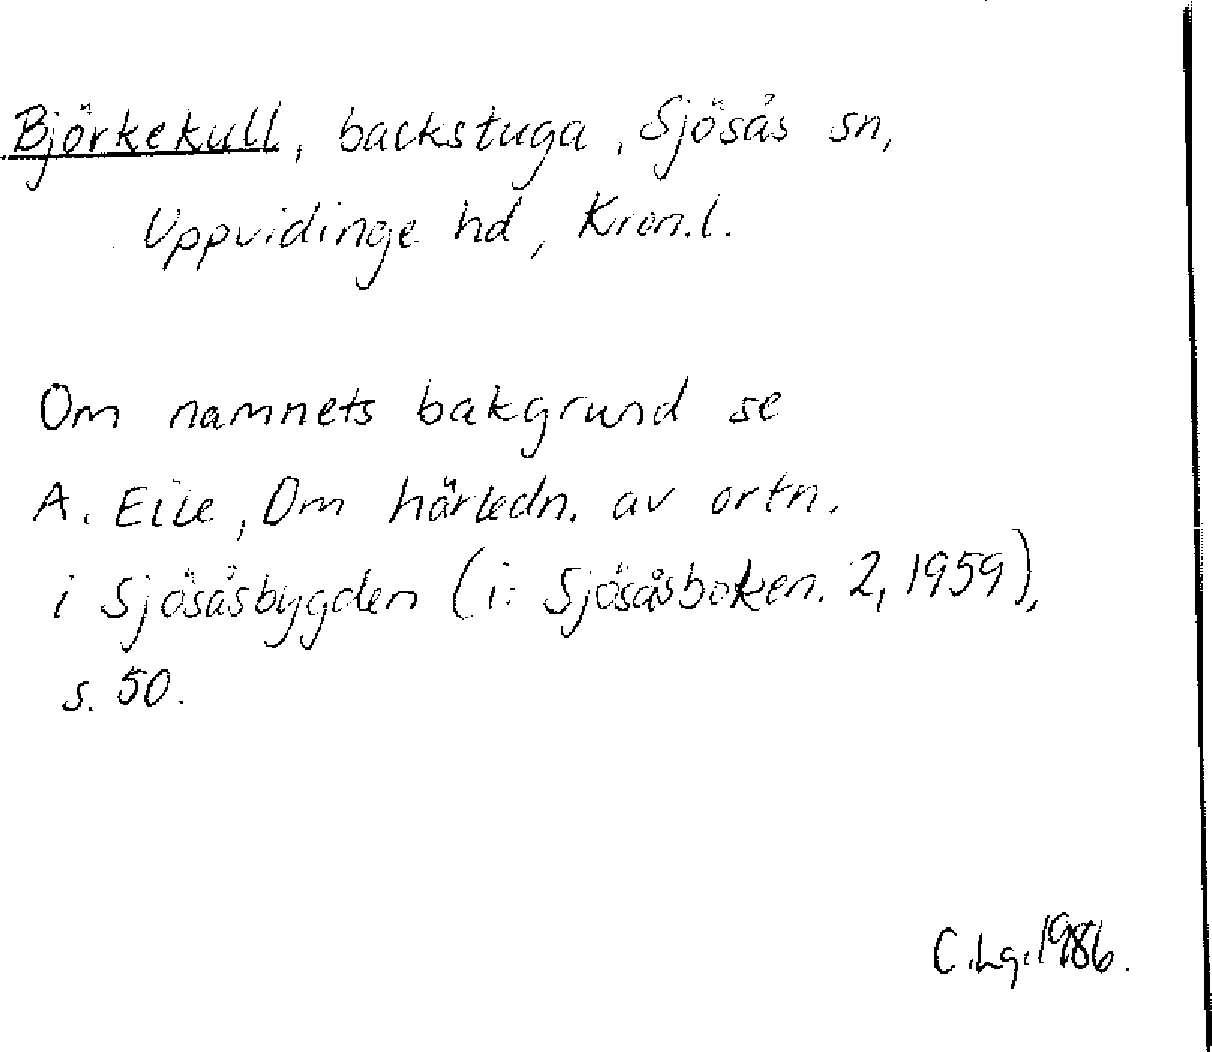 Björkekull, backstuga, Sjösås sn,
Uppvidinge hd, Kron.l.
Om namnets bakgrund se
A. Eile, Om härledn. av ortn.
i Sjösåsbygden (i: Sjösåsboken. 2, 1959),
s. 50.
C.Lg.1986.